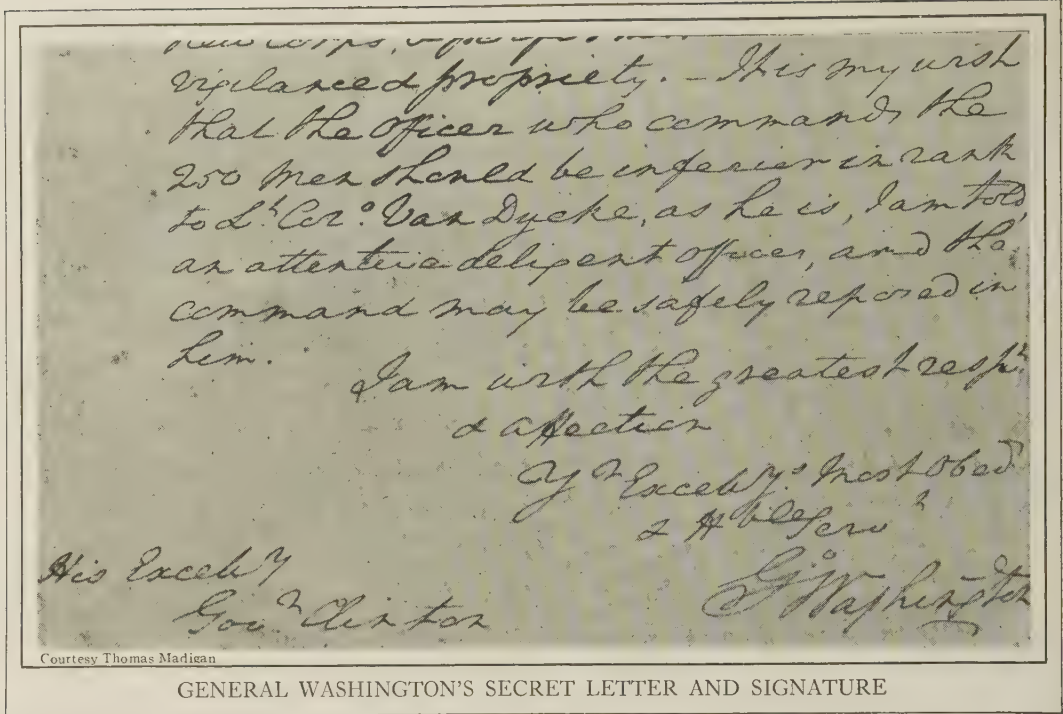 vigilance & propriety. – It is my wish
that the officer who commands the
250 Men should be inferior in rank
to Lt. Colo. Van Dycke, as he is, I am told,
an attentive deligent officer, and the
command may be safely reposed in
him.
I am with the greatest respt.
& affection
Yr. Excelly's. Most Obed
& Hble Servt
G:Washington
His Excelly
Govr. Clinton
Courtesy Thomas Madigan
GENERAL WASHINGTON'S SECRET LETTER AND SIGNATURE